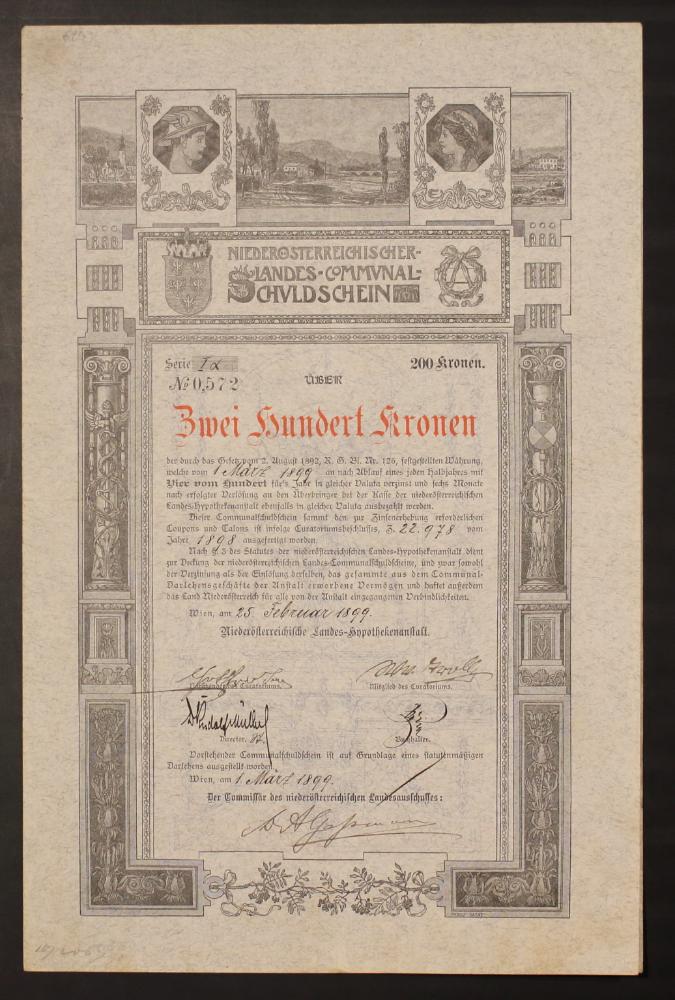 NIEDERÖSTERREICHISCHER-
LANDES-COMMVNAL-
SCHVLDSCHEIN
Serie IX
200 Kronen.
№ 0,572
ÜBER
Zwei Hundert Kronen
der durch das Gesetz vom 2. August 1892, R. G. Bl. Nr. 126, festgestellten Währung,
welche vom 1. März 1899 an nach Ablauf eines jeden Halbjahres mit
Vier vom Hundert für's Jahr in gleicher Valuta verzinst und sechs Monate
nach erfolgter Verlosung an den Überbringer bei der Kasse der niederösterreichischen
Landes-Hypothekenanstalt ebenfalls in gleicher Valuta ausbezahlt werden.
Dieser Communalschuldschein sammt den zur Zinsenerhebung erforderlichen
Coupons und Talons ist infolge Curatoriumsbeschlusses, Z. 22.978 vom
Jahre 1898 ausgefertigt worden.
Nach § 3 des Statutes der niederösterreichischen Landes-Hypothekenanstalt dient
zur Deckung der niederösterreichischen Landes-Communalschuldscheine, und zwar sowohl
der Verzinsung als der Einlösung derselben, das gesammte aus dem Communal-
Darlehensgeschäfte der Anstalt erworbene Vermögen und haftet außerdem
das Land Niederösterreich für alle von der Anstalt eingegangenen Verbindlichkeiten.
Wien, am 25. Februar 1899.
Niederösterreichische Landes-Hypothekenanstalt.
des Curatoriums.
Mitglied des Curatoriums.
Dr Rudolf Müller
Director.
Buchhalter.
Vorstehender Communalschuldschein ist auf Grundlage eines statutenmäßigen
Darlehens ausgestellt worden.
Wien, am 1. März 1899.
Der Commissär des niederösterreichischen Landesausschusses: